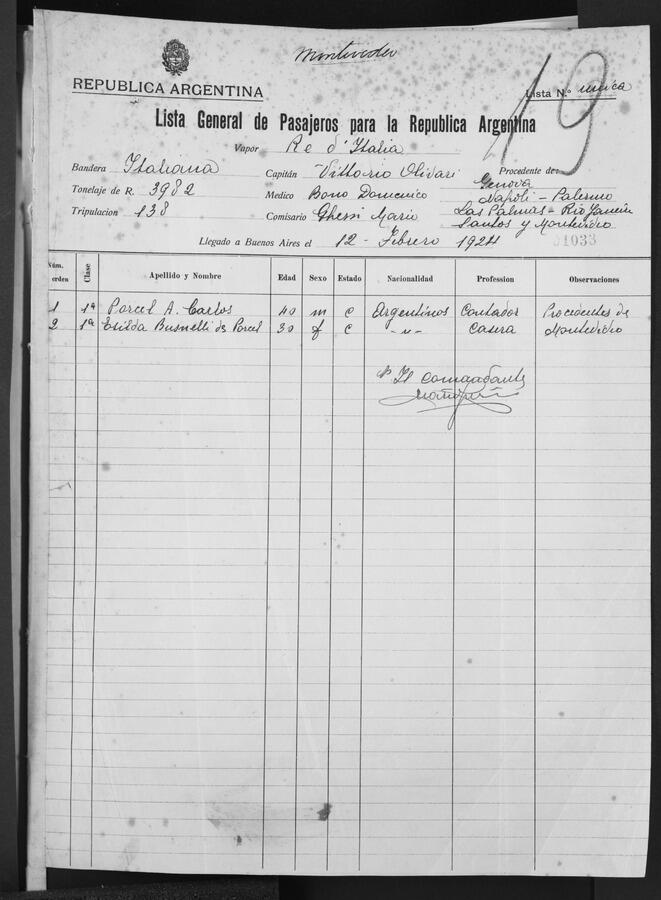 Montevideo
REPUBLICA ARGENTINA
Lista N.o unica
19
Lista General de Pasajeros para la Republica Argentina
Vapor Re d'Italia
Bandera Italiana Capitán Vittorio Olivari Procedente de: Genova
Tonelaje de R. 3982 Medico Bono Domenico Napoli - Palermo
Tripulacion 138 Comisario Ghessi Mario Las Palmas - Rio
Santos y Montevideo
Llegado a Buenos Aires el 12 - Febrero 1924 01033
Núm. orden Clase Apellido y Nombre Edad Sexo Estado Nacionalidad Profession Observaciones
1 1a Porcel A. Carlos 40 m c Argentinos Contador Procedentes de
2 1a Esilda Busnelli de Porcel 30 f c -"- Casera Montevideo
p. Il Comandante